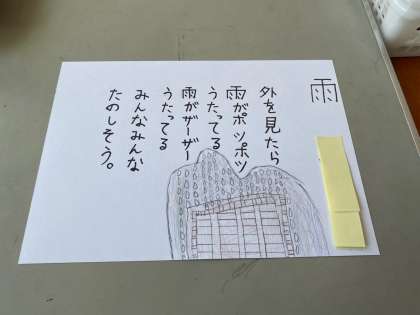 雨
外を見たら
雨がポツポツ
うたってる
雨がザーザー
うたってる
みんなみんな
たのしそう。